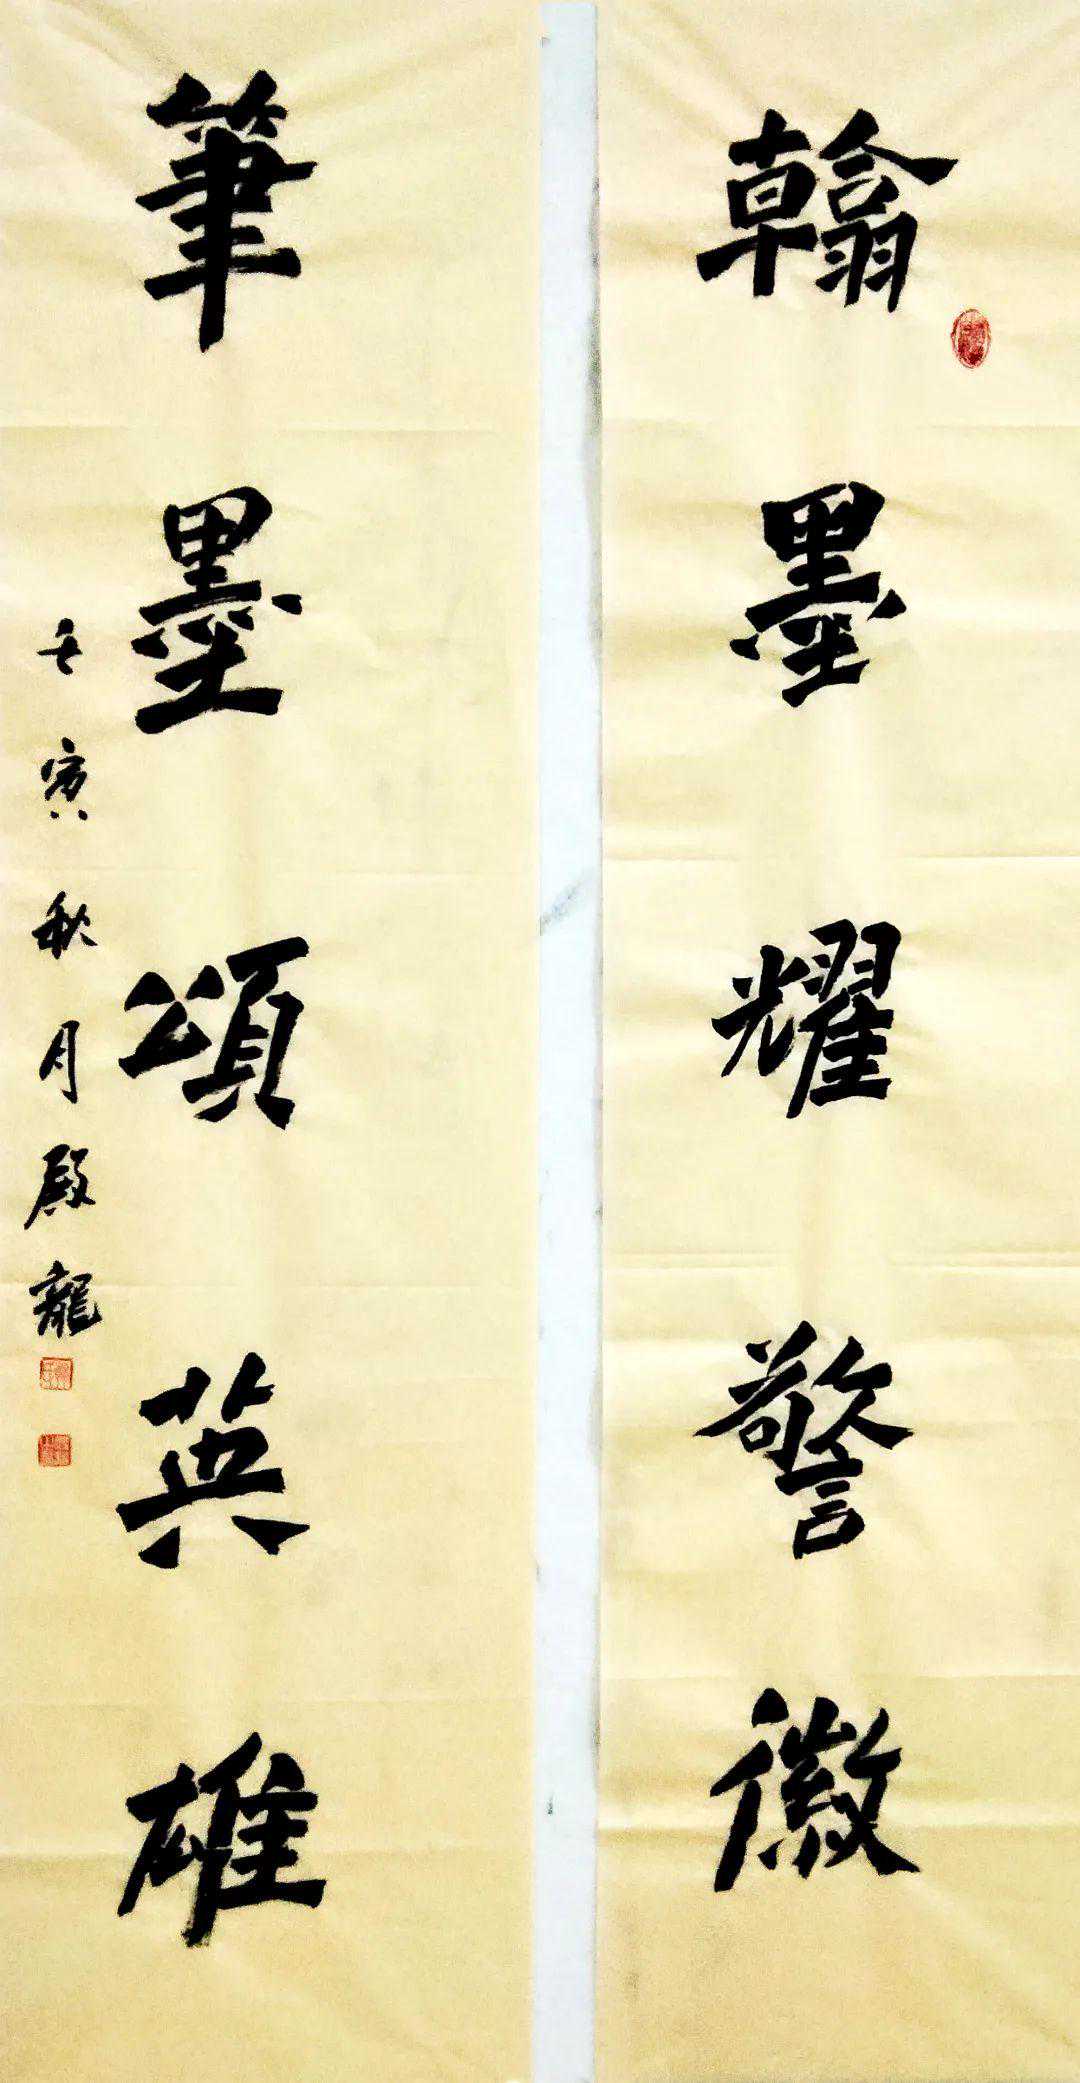 翰墨耀警徽
筆墨頌英雄
壬寅秋月殿龍